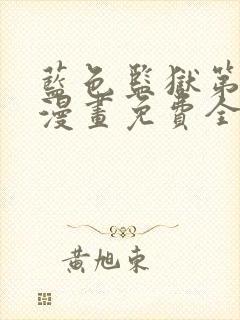 藍色監獄第
漫畫免費全
黃旭東